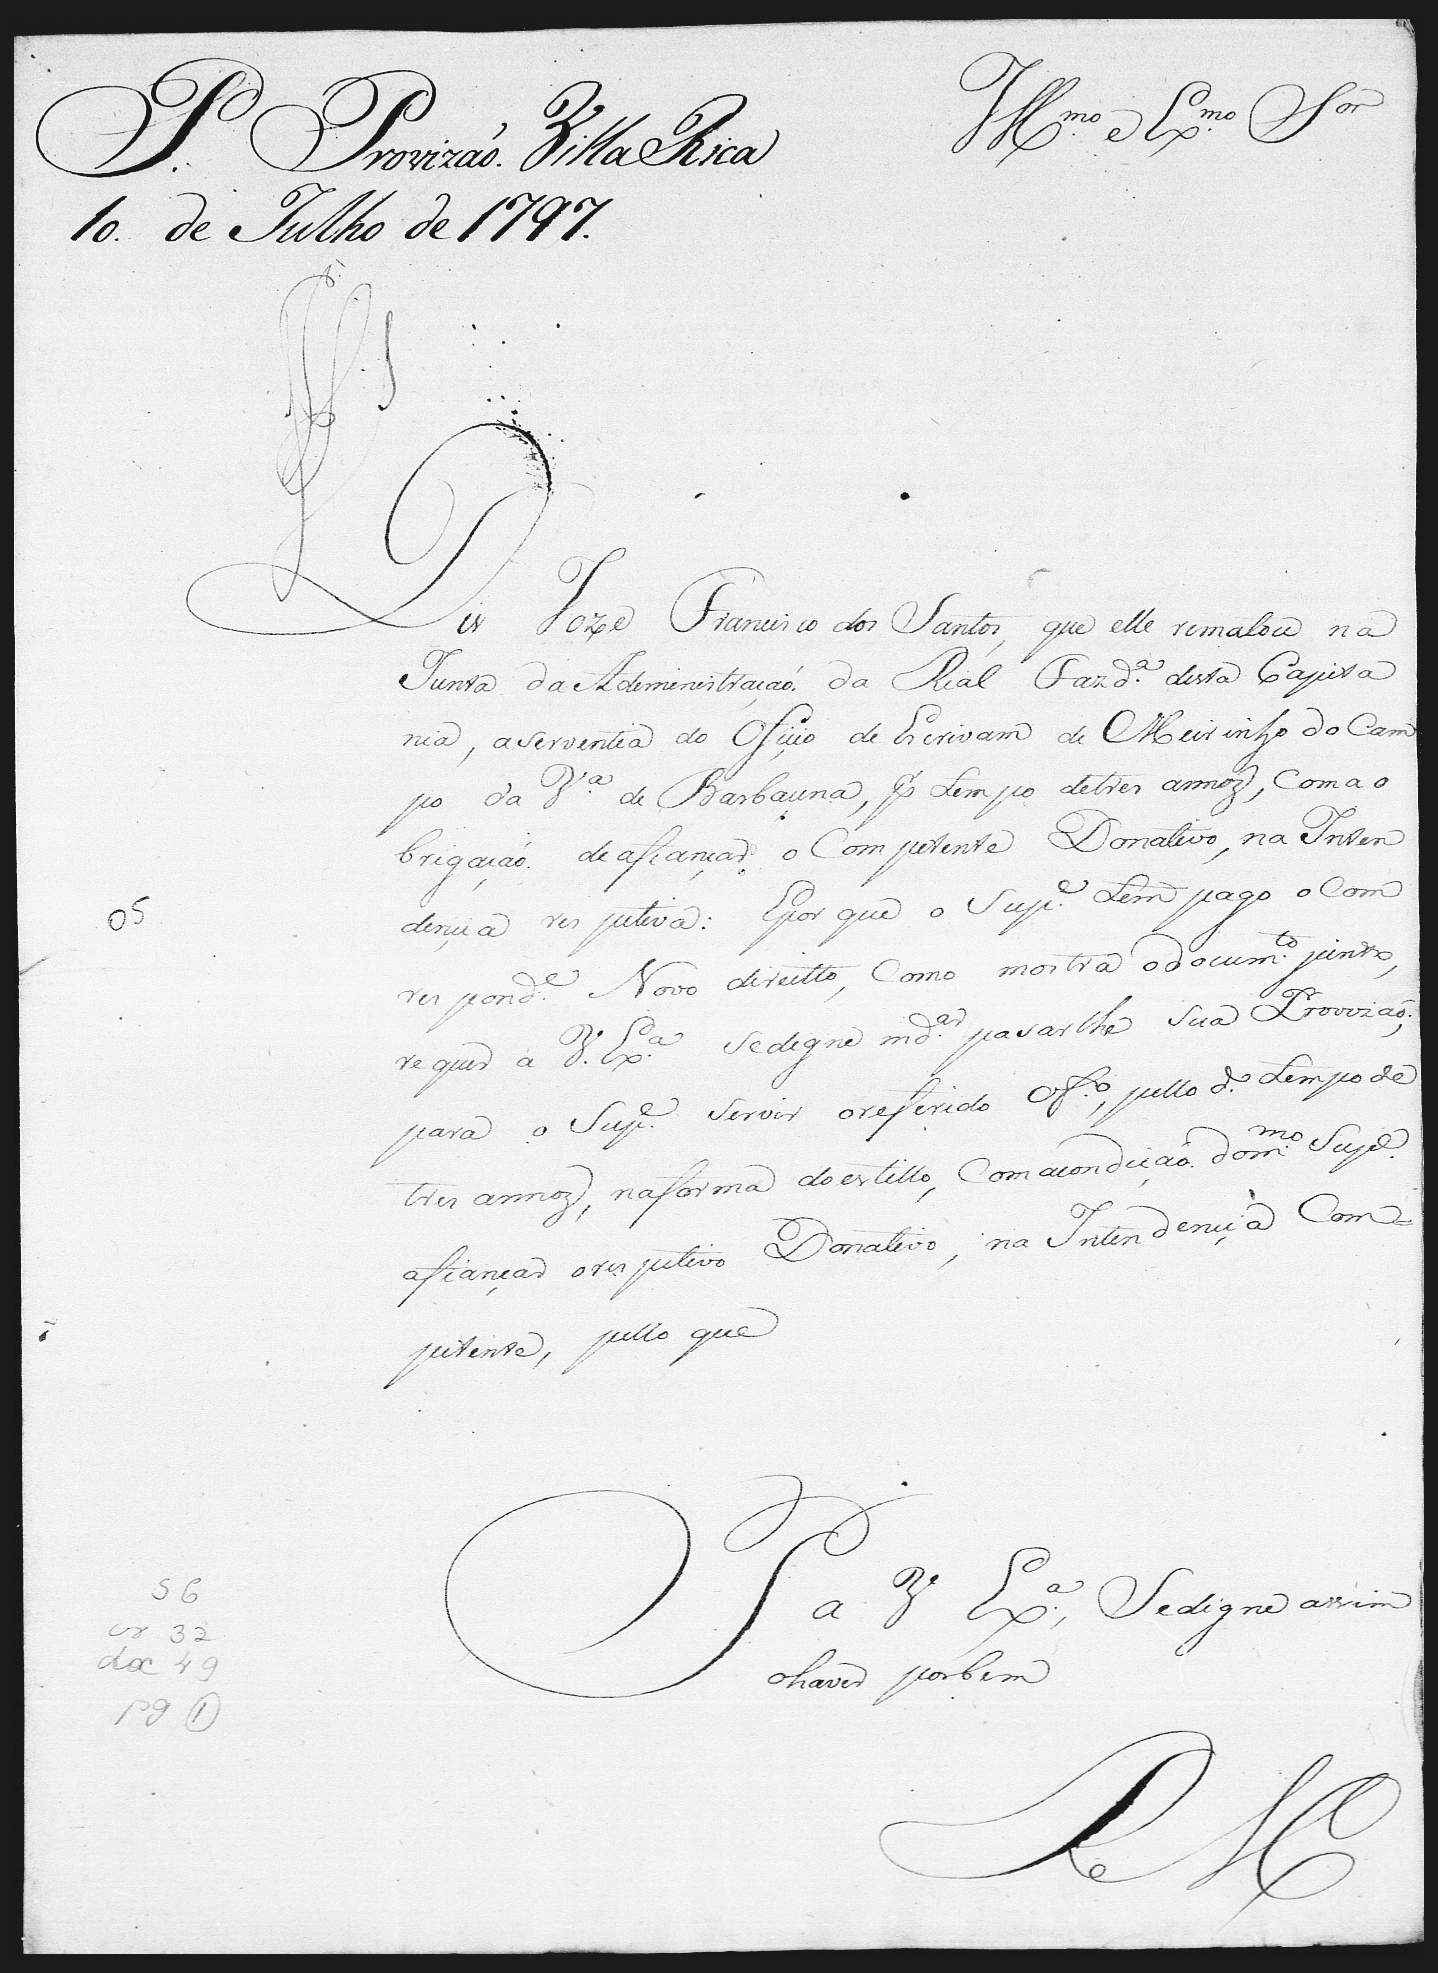 P. Provizaõ. Villa Rica
10. de Julho de 1797.
Illmo. e Exmo. Sor
Dis Joze Francisco dos Santos, que elle rematou na
Junta daAdemenistraçaõ. da Rial Fazda. desta Capita
nia, a serventia do Ofiçio de Escrivam de Meirinho do Cam
po da Va. de Barbaçena, p tempo de tres annos, Com a o
brigaçaõ. de afiançar o Competente Donativo, na Inten
dençia respetiva: E por que o Supe. tem pago o Com
responde. Novo direitto, Como mostra o documto. junto,
requer a V. Exa. se digne mdar. pasarlhe sua Provizaõ;
para o Supe. servir o referido Ofo., pello do. tempo de
tres annos, na forma do estillo, Com a condiçaõ. do mmo. Supe.
afiançar o respetivo Donativo, na Intendençia Com=
petente, pello que
P a V Exa., Se digne assim
o haver por bem
05
56
cx 32
doc 49
pg 1
E R Mce